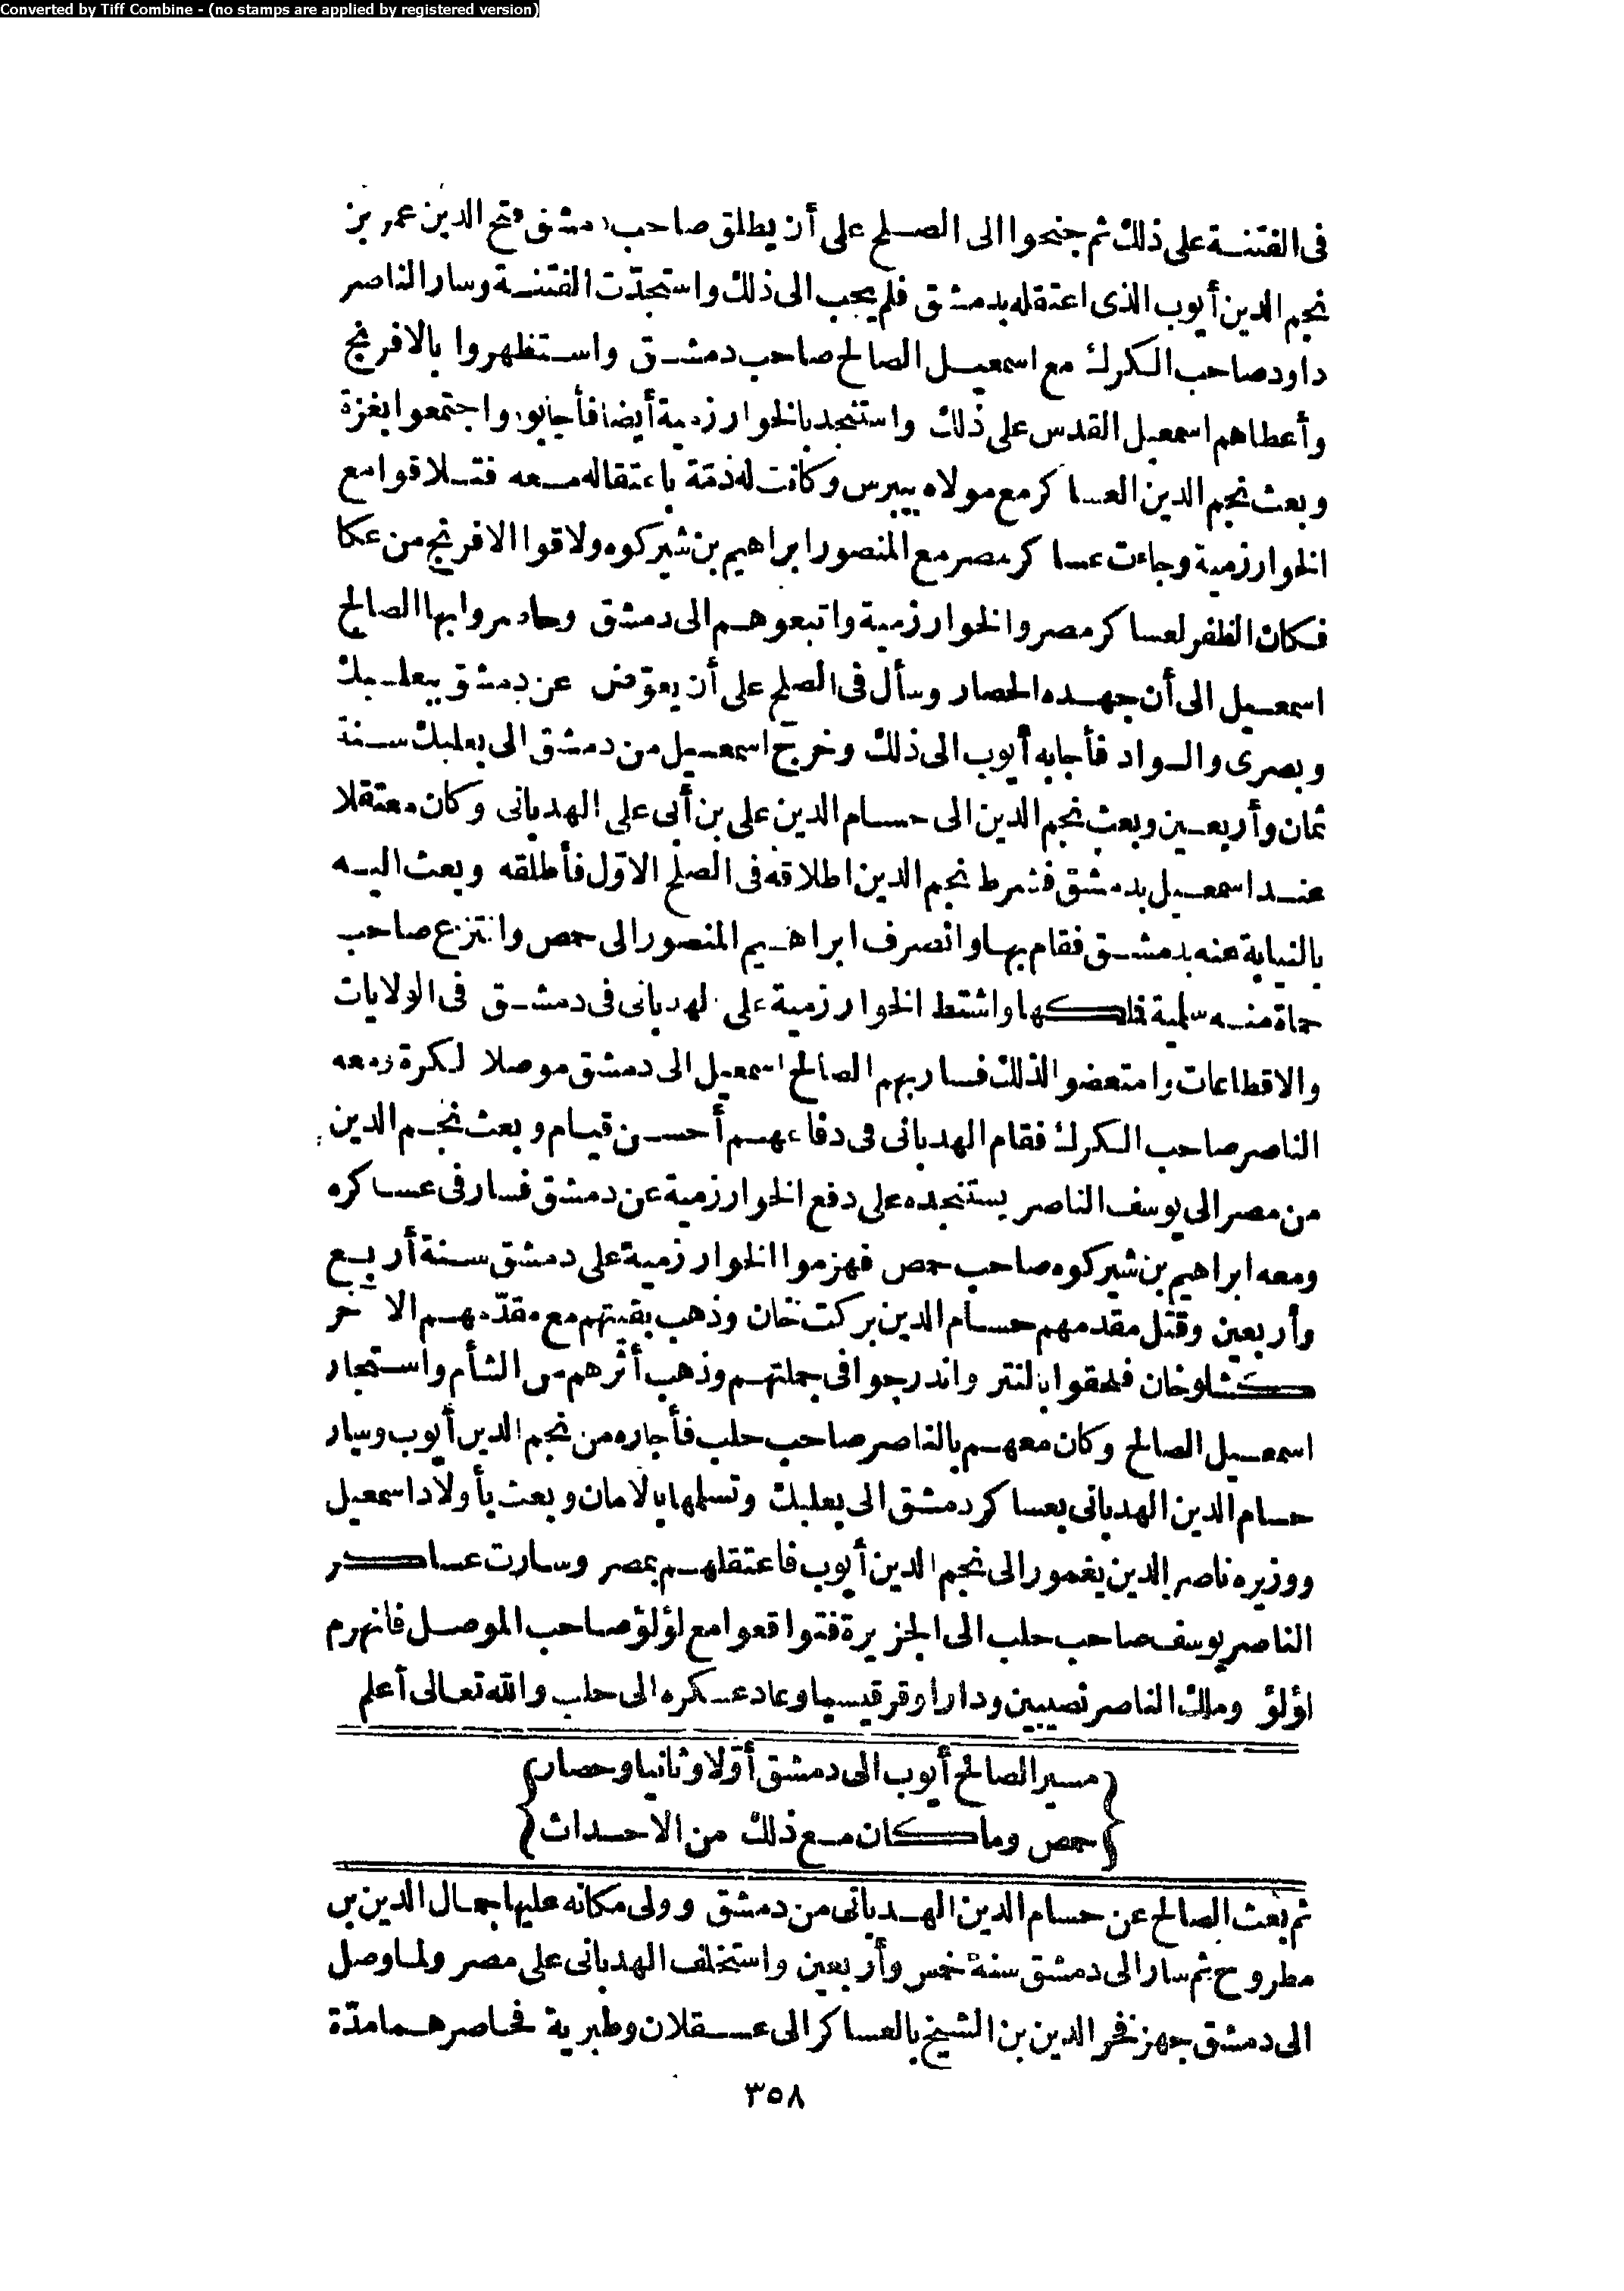 Converted by Tiff Combine - (no stamps are applied by registered version)
فى الفتنة على ذلك ثم جنحوا الى الصلح على أن يطلق صاحب دمشق فتح الدين عمر بن
نجم الدين أيوب الذى اعتقله بدمشق فلم يجب الى ذلك واستجدّت الفتنة وسار الناصر
داود صاحب الكرك مع اسمعيل الصالح صاحب دمشق واستظهروا بالافرنج
وأعطاهم اسمعيل القدس على ذلك واستنجد بالخوارزمية أيضا فأجابوه واجتمعوا بغزة
وبعث نجم الدين العساكر مع مولاه بيبرس وكانت له ذمّة باعتقاله معه فتلاقوا مع
الخوارزمية وجاءت عساكر مصر مع المنصور ابراهيم بن شيركوه ولاقوا الافرنج من عكا
فكان الظفر لعساكر مصر والخوارزمية واتبعوهم الى دمشق وحاصروا بها الصالح
اسمعيل الى أن جهده الحصار وسأل فى الصلح على أن يعوّض عن دمشق ببعلبك
وبصرى والسواد فأجابه أيوب الى ذلك وخرج اسمعيل من دمشق الى بعلبك سنة
ثمان وأربعين وبعث نجم الدين الى حسام الدين على بن أبى على الهدبانى وكان معتقلا
عند اسمعيل بدمشق فشرط نجم الدين اطلاقه فى الصلح الاوّل فأطلقه وبعث اليه
بالنيابة عنه بدمشق فقام بها وانصرف ابراهيم المنصور الى حمص وانتزع صاحب
حماة منه سلمية فملكها واشتط الخوارزمية على الهدبانى فى دمشق فى الولايات
والاقطاعات وامتعضوا لذلك فسار بهم الصالح اسمعيل الى دمشق موصلا لكرة ومعه
الناصر صاحب الكرك فقام الهدبانى فى دفاعهم أحسن قيام وبعث نجم الدين
من مصر الى يوسف الناصر يستنجده على دفع الخوارزمية عن دمشق فسار فى عساكره
ومعه ابراهيم بن شيركوه صاحب حمص فهزموا الخوارزمية على دمشق سنة أربع
وأربعين وقتل مقدمهم حسام الدين بركت خان وذهب بقيتهم مع مقدّمهم الآخر
كشلوخان فلحقوا بالتتر واندرجوا فى جملتهم وذهب أثرهم من الشأم واستجار
اسمعيل الصالح وكان معهم بالناصر صاحب حلب فأجاره من نجم الدين أيوب وسار
حسام الدين الهدبانى بعساكر دمشق الى بعلبك وتسلمها بالامان وبعث بأولاد اسمعيل
ووزيره ناصر الدين يغمور الى نجم الدين أيوب فاعتقلهم بمصر وسارت عساكر
الناصر يوسف صاحب حلب الى الجزيرة فتواقعوا مع لؤلؤ صاحب الموصل فانهزم
لؤلؤ وملك الناصر نصيبين ودارا وقرقيسيا وعاد عسكره الى حلب والله تعالى أعلم
{مسير الصالح أيوب الى دمشق أوّلا وثانيا وحصار}
{حمص وما كان مع ذلك من الاحداث}
ثم بعث الصالح عن حسام الدين الهدبانى من دمشق وولى مكانه عليها جمال الدين بن
مطروح ثم سار الى دمشق سنة خمس وأربعين واستخلف الهدبانى على مصر ولما وصل
الى دمشق جهز فخر الدين بن الشيخ بالعساكر الى عسقلان وطبرية فحاصرهما مدّة
٣٥٨